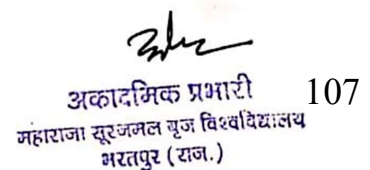 अकादमिक प्रभारी 107
महाराजा सूरजमल बृज विश्वविद्यालय
भरतपुर (राज.)